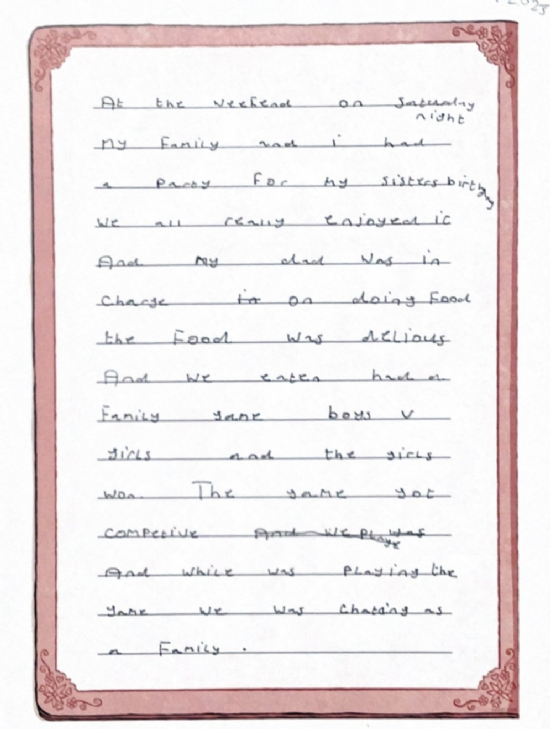 2025
At the weekend on Saturday
night
My Family and i had
a Party For my sisters birthday
We all really enjoyed it
And my dad was in
Charge in on doing Food
the Food was delious
And we eaten had a
Family game boys v
girls and the girls
won. The game got
competive And we play was
And while was Playing the
game we was Chatting as
a Family.